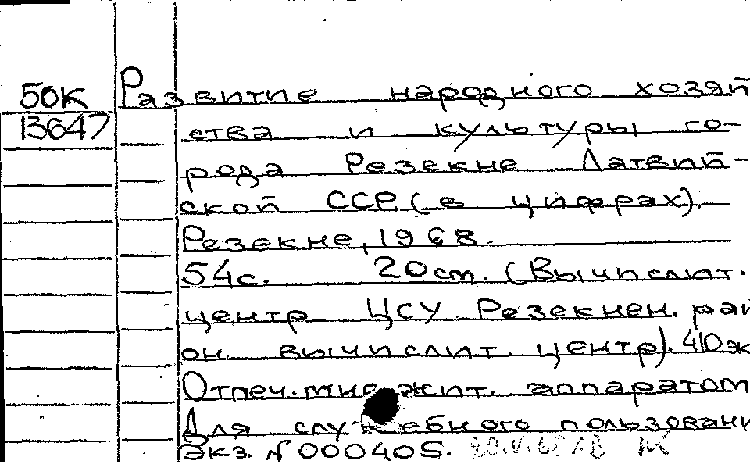 50К Развитие народного хозяй
13647 ства и культуры го-
рода Резекне Латвий-
ской ССР (в цифрах).
Резекне, 1968.
54с. 20см. (Вычислит.
центр ЦСУ Резекнен. рай
он. вычислит. центр). 410ж
Отпеч. множит. аппаратом
Для служебного пользовани
Экз. N 000405.